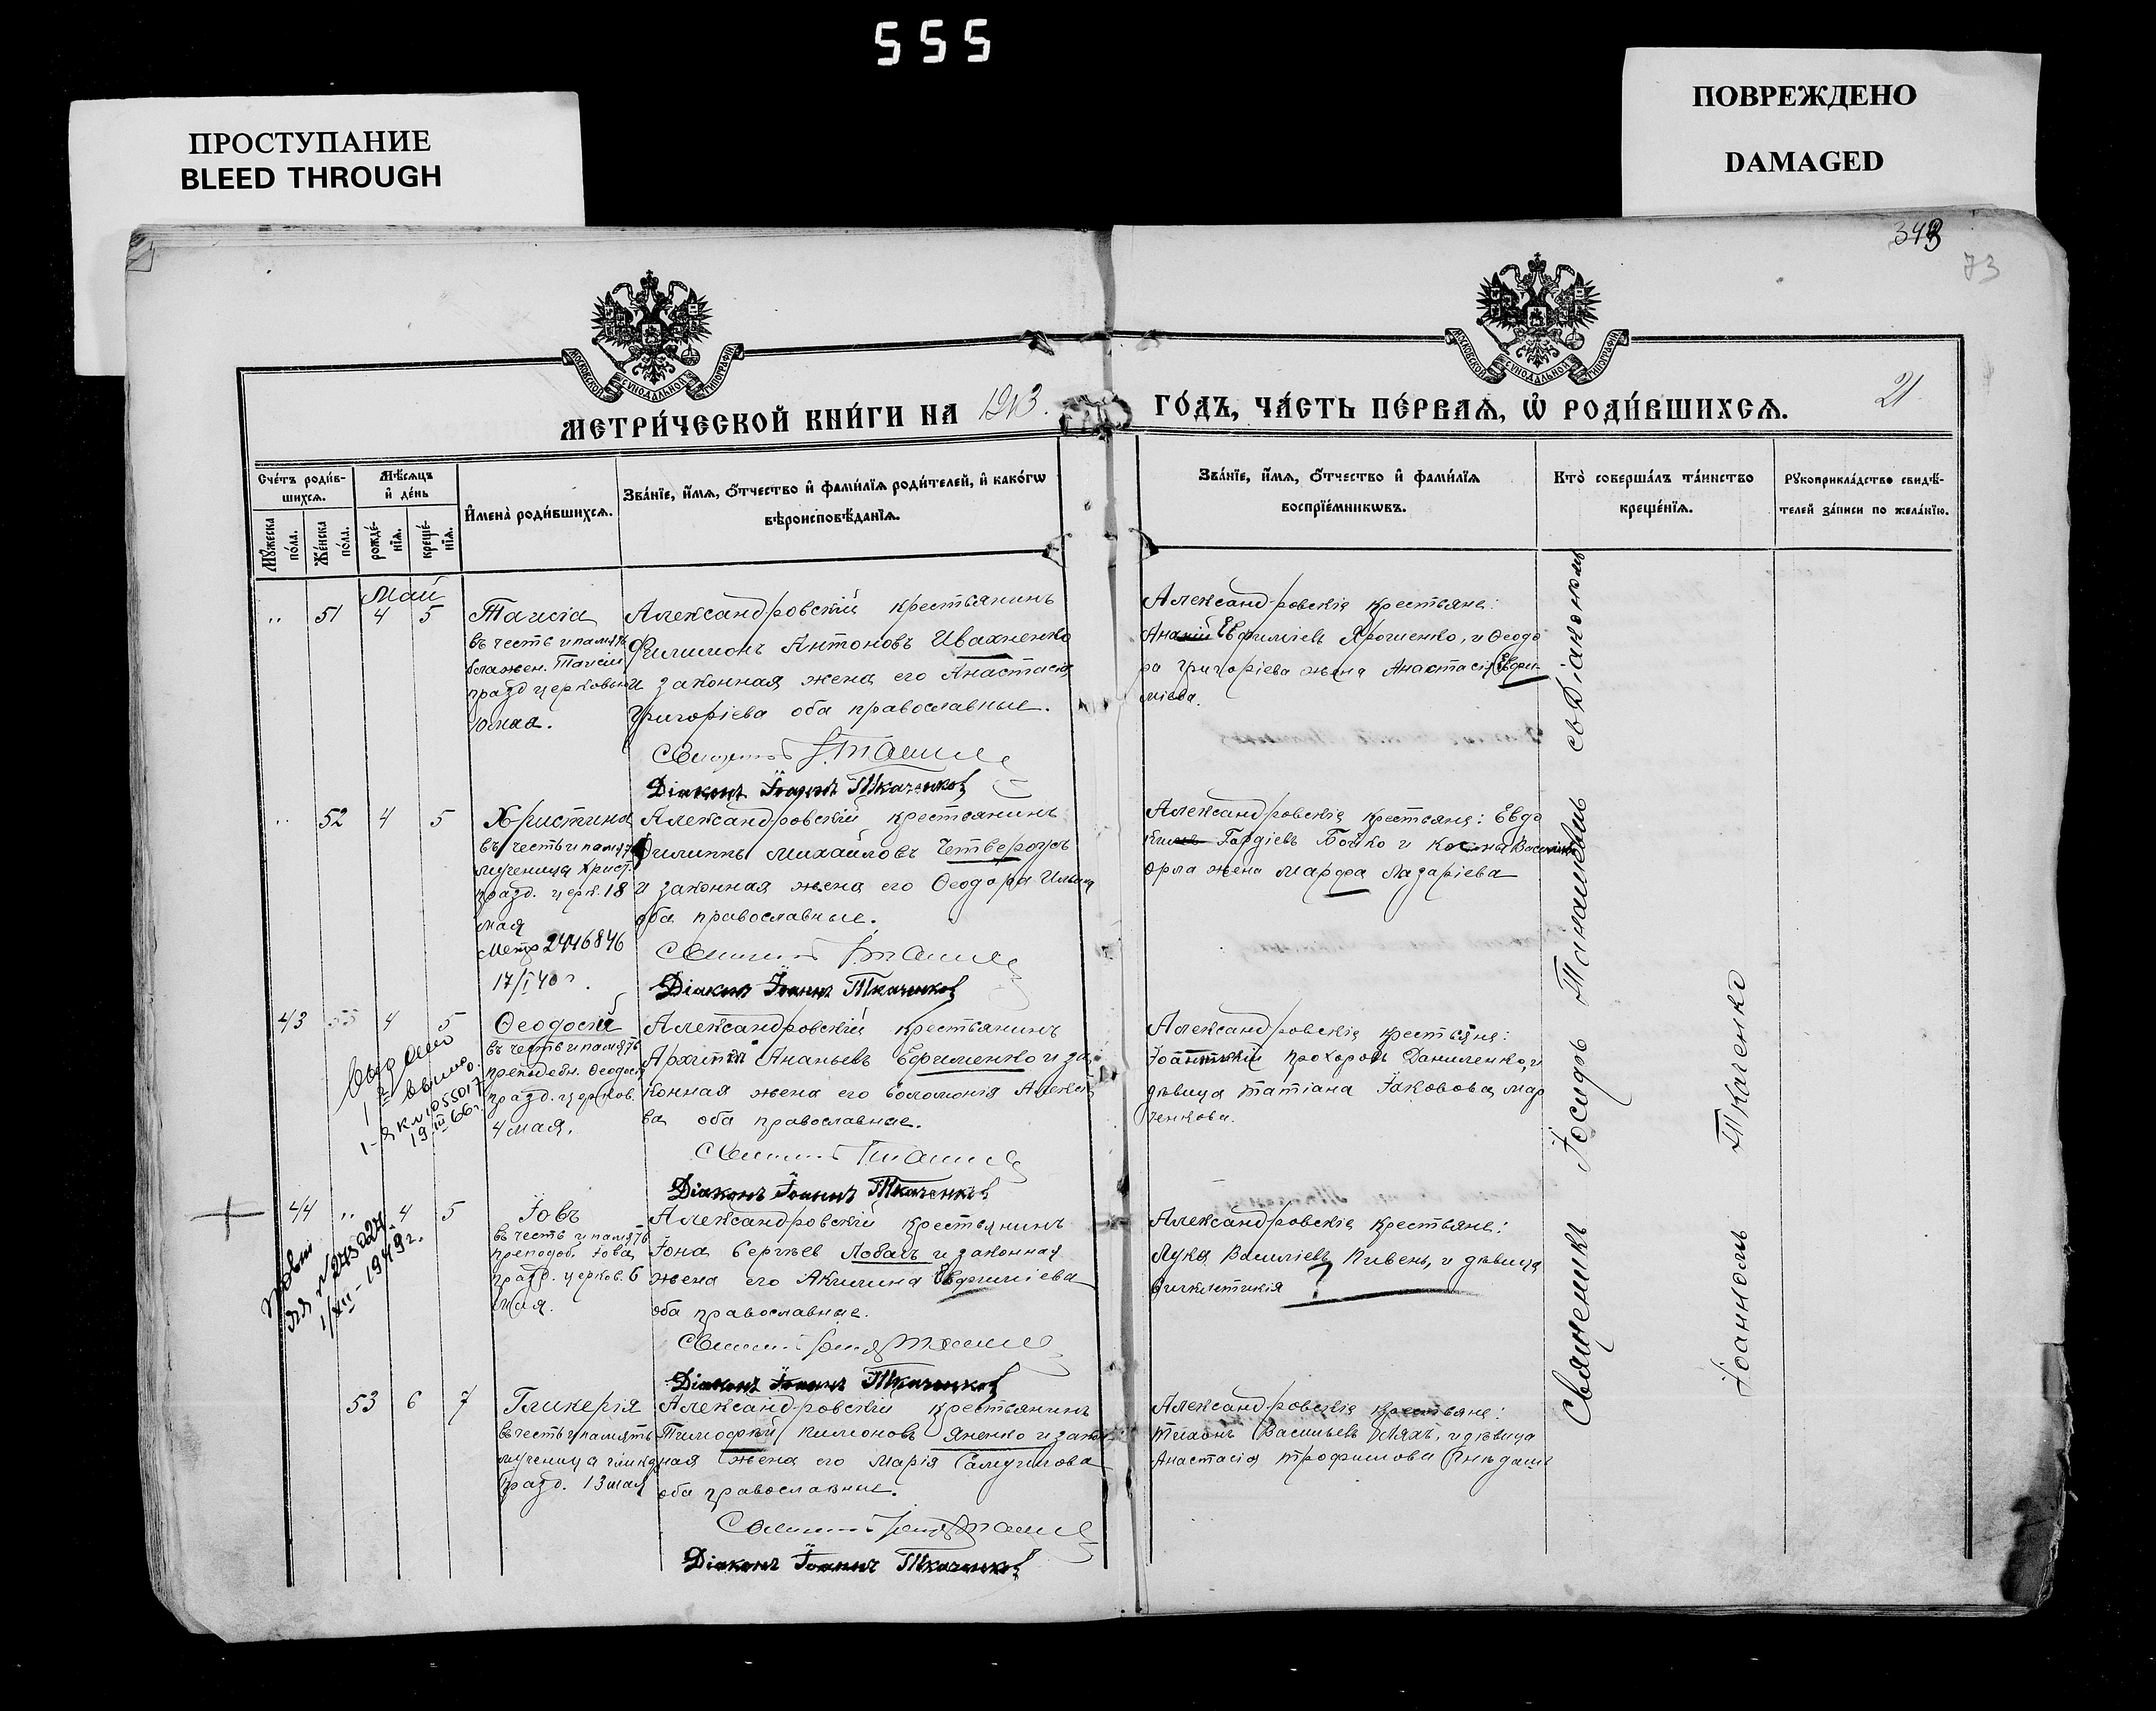 555
ПРОСТУПАНИЕ
BLEED THROUGH
ПОВРЕЖДЕНО
DAMAGED
73
МОСКОВСКОЙ СѴНОДАЛЬНОЙ ТИПОГРАФІИ
МОСКОВСКОЙ СѴНОДАЛЬНОЙ ТИПОГРАФІИ
МЕТРИ́ЧЕСКОЙ КНИ́ГИ НА 1913.
ГО́ДЪ, ЧА́СТЬ ПЕ́РВАѦ, Ѡ РОДИ́ВШИХСѦ.
21
Сче́тъ роди́в-
шихсѧ.
Мѣ́сѧцъ
и҆ де́нь
Мꙋ́жеска
по́ла.
Же́нска
по́ла.
рожде́-
нїѧ.
креще́-
нїѧ.
И҆мена̀ роди́вшихсѧ.
Зва́нїе, и҆́мѧ, ѻ҆́тчество и҆ фами́лїѧ роди́телей, и҆ како́гѡ
вѣроисповѣ́данїѧ.
Зва́нїе, и҆́мѧ, ѻ҆́тчество и҆ фами́лїѧ
воспрїе́мникѡвъ.
Кто̀ соверша́лъ та́инство
креще́нїѧ.
Рꙋкоприкла́дство свидѣ́-
телей за́писи по жела́нїю.
Май
51 4 5 Таисія
въ честь и память
блажен. Таисіи
празд церковью
Александровскій крестьянинъ
Филимонъ Антоновъ Ивахненко
и законная жена его Анастасія
Григоріева оба православные.
Діаконъ Іоаннъ Ткаченковъ
Александровскіе крестьяне:
Ананій Евфиміевъ Ярошенко, и Ѳеодо
ра Григоріева жена Анастасія Евфи-
міева.
52 4 5 Христина
въ честь и память
мученицы Христ.
празд. церк. 18
мая
Метр 2446846
17/I 40 г.
Александровскій крестьянинъ
Филиппъ Михайловъ Четвероусъ
и законная жена его Ѳеодора Ильина
оба православные.
Діаконъ Іоаннъ Ткаченковъ
Александровскіе крестьяне: Евдо
Гордіевъ Бойко и
Орла жена Марфа Лазаріева
43 4 5 Ѳеодосій
въ честь и память
преподобн. Ѳеодосія
празд. церков.
4 мая.
Выдано
19 III 66 г.
Александровскій крестьянинъ
Архипъ Ананьевъ Ефременко и за
конная жена его Соломонія Алексѣе
ва оба православные.
Діаконъ Іоаннъ Ткаченковъ
Александровскіе крестьяне:
Прохоровъ Даниленко, и
дѣвица Татіана Іаковова Мар
ченкова.
44 4 5 Іовъ
въ честь и память
преподоб. Іова
празд. церков. 6
мая.
1/XII-1949 г.
Александровскій крестьянинъ
Іона Сергѣев Лобачъ и законная
жена его Акилина Евфиміева
оба православные.
Діаконъ Іоаннъ Ткаченковъ
Александровскіе крестьяне:
Лука Василіевъ Пивень, и дѣвица
Синклетикія ?
53 6 7 Гликерія
въ честь и память
мученицы Глике
празд. 13 мая
Александровскій крестьянинъ
Тимофей Филимоновъ Яненко и закон
ная жена его Марія Самуилова
оба православные.
Діаконъ Іоаннъ Ткаченковъ
Александровскіе крестьяне:
Тихонъ Васильевъ Ляхъ, и дѣвица
Анастасія Трофимова
Священникъ Іосифъ Танашевичъ съ Діакономъ
Іоанномъ Ткаченко